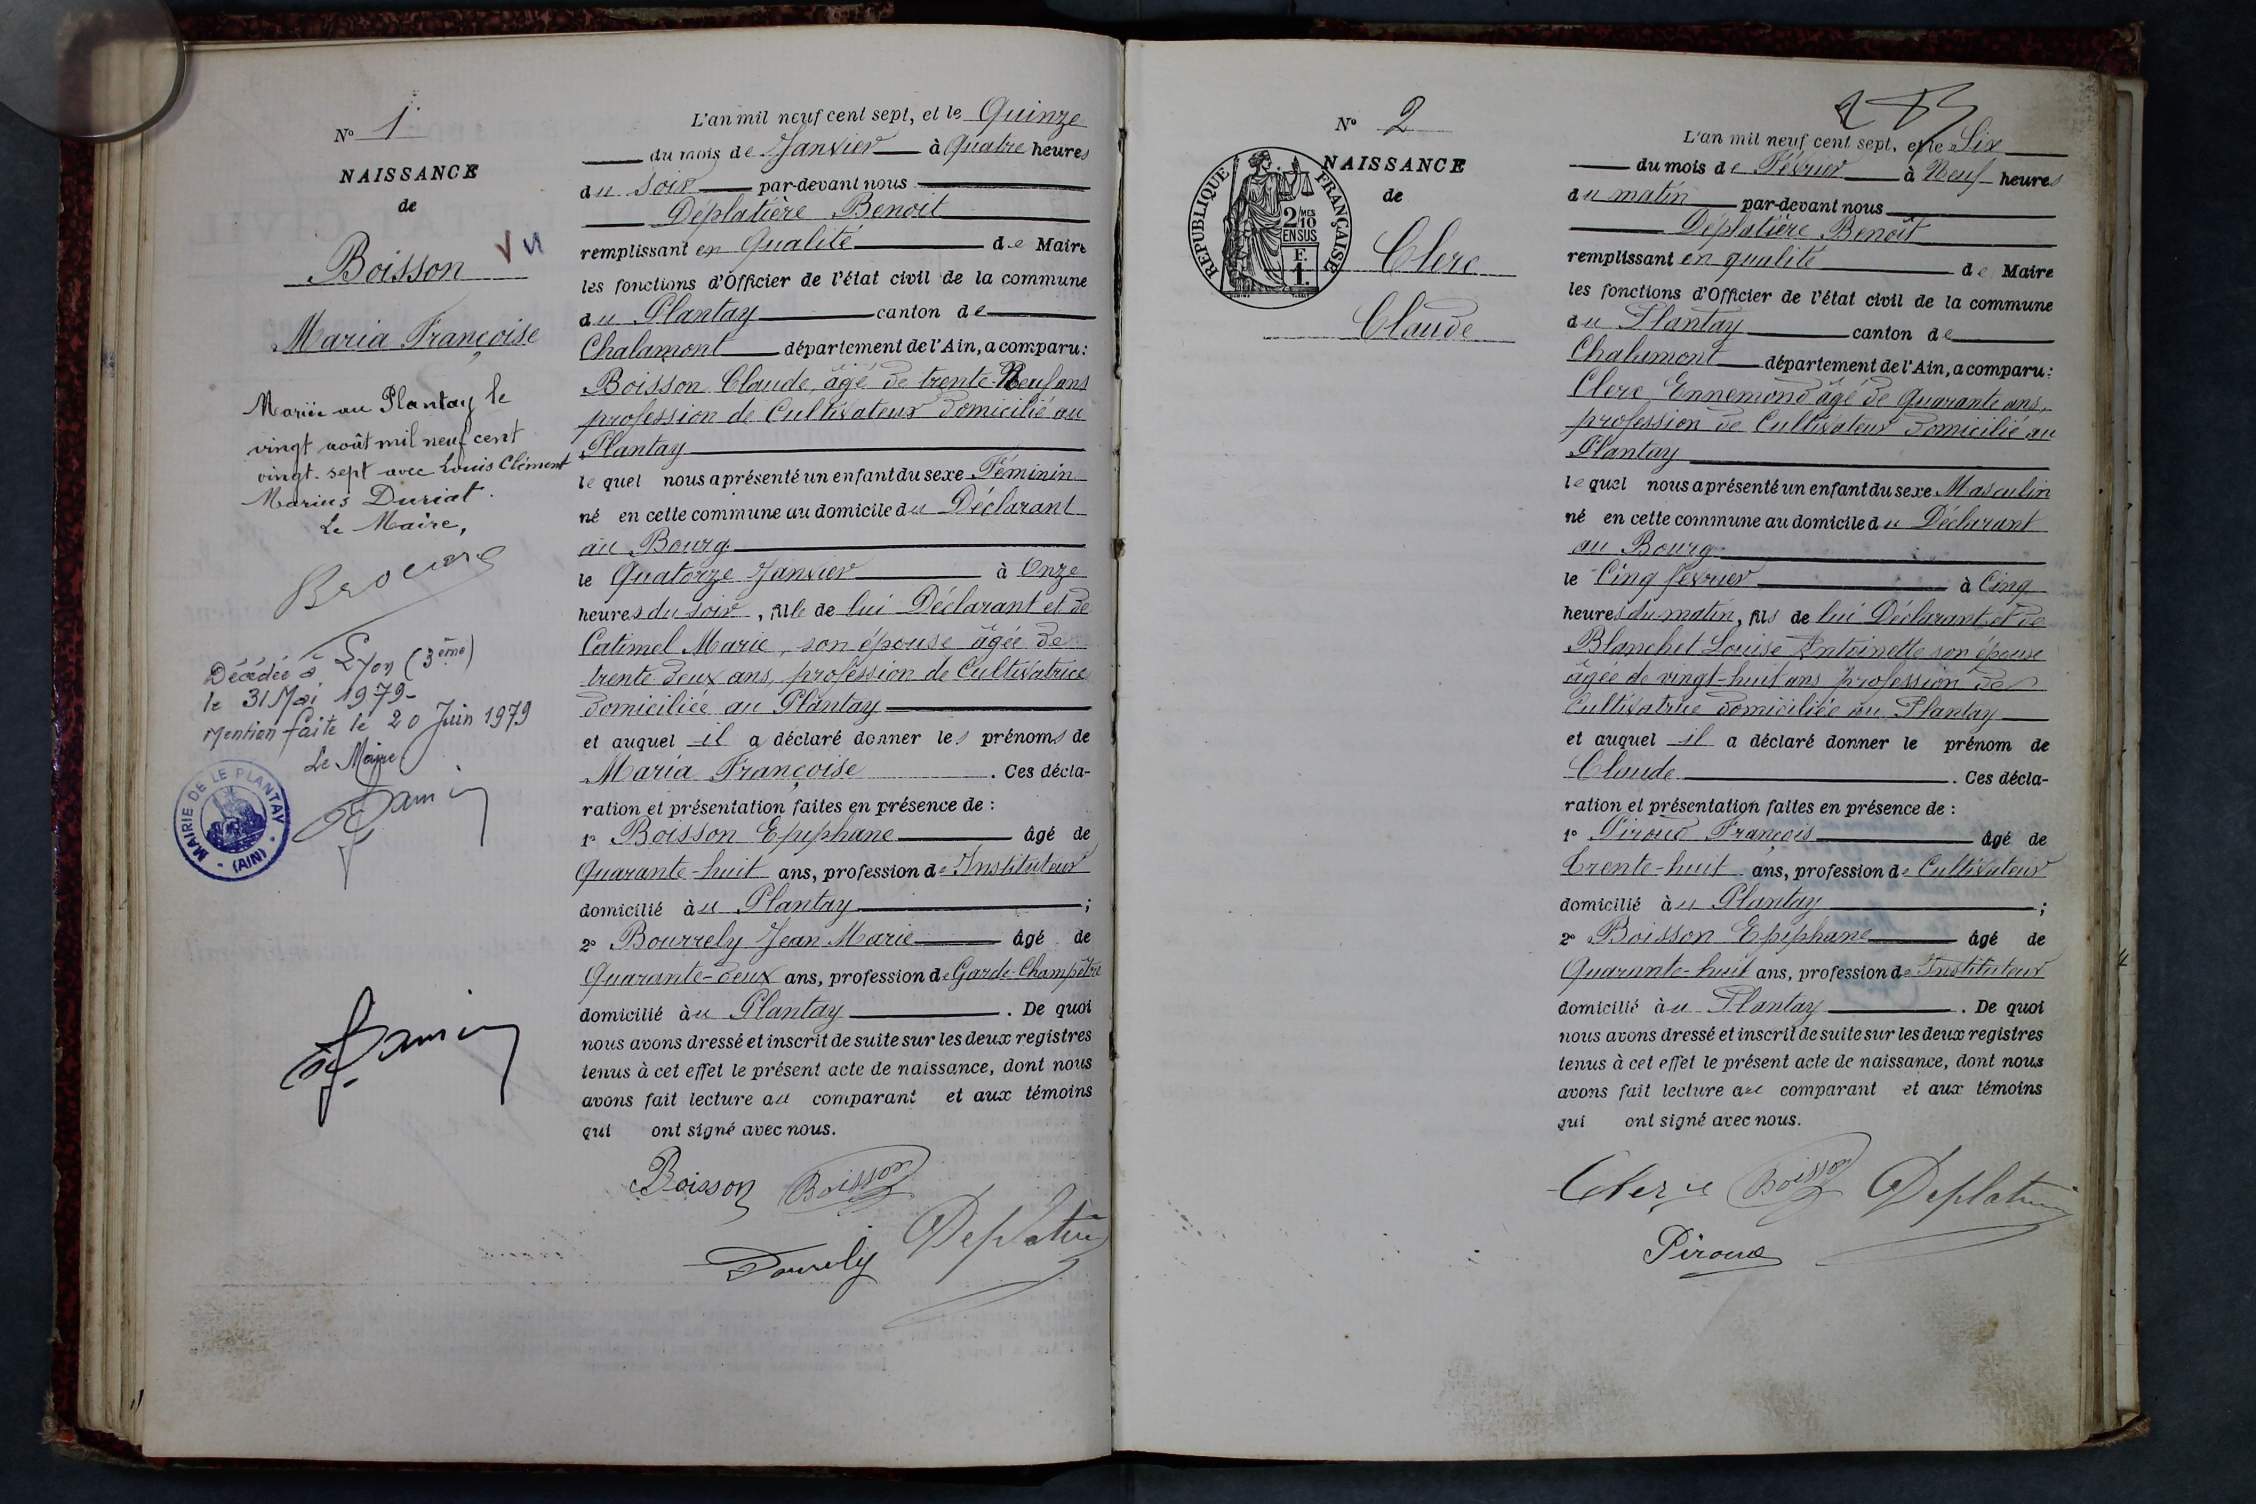 N° 1
NAISSANCE
de
Boisson
Vu
Maria Françoise
Mariée au Plantay le
vingt août mil neuf cent
vingt-sept avec Louis Clément
Marius Duriat.
Le Maire,
Décédée à Lyon (3ème)
le 31 Mai 1979-
Mention faite le 20 Juin 1979
Le Maire
MAIRIE DE LE PLANTAY
(AIN)
L'an mil neuf cent sept, et le Quinze
du mois de Janvier à Quatre heures
du soir par-devant nous
Déplatière Benoit
remplissant en Qualité de Maire
les fonctions d'Officier de l'état civil de la commune
du Plantay canton de
Chalamont département de l'Ain, a comparu:
Boisson Claude, âgé de trente-Neuf ans
profession de Cultivateur domicilié au
Plantay
le quel nous a présenté un enfant du sexe Féminin
né en cette commune au domicile du Déclarant
au Bourg
le Quatorze Janvier à Onze
heures du soir, fille de lui Déclarant et de
Catimel Marie, son épouse âgée de
trente deux ans, profession de Cultivatrice
domiciliée au Plantay
et auquel il a déclaré donner les prénoms de
Maria Françoise. Ces décla-
ration et présentation faites en présence de :
1° Boisson Epiphane âgé de
Quarante-huit ans, profession de Instituteur
domicilié au Plantay ;
2° Bourrely Jean Marie âgé de
Quarante-deux ans, profession de Garde-Champêtre
domicilié au Plantay . De quoi
nous avons dressé et inscrit de suite sur les deux registres
tenus à cet effet le présent acte de naissance, dont nous
avons fait lecture au comparant et aux témoins
qui ont signé avec nous.
Boisson Boisson
Bourrely Deplatière
N° 2
NAISSANCE
de
RÉPUBLIQUE FRANÇAISE
2/10 MES
EN SUS
F.
1.
Clerc
Claude
L'an mil neuf cent sept, et le Six
du mois de Février à Neuf heures
du matin par-devant nous
Déplatière Benoît
remplissant en qualité de Maire
les fonctions d'Officier de l'état civil de la commune
du Plantay canton de
Chalamont département de l'Ain, a comparu:
Clerc Ennemond âgé de Quarante ans,
profession de Cultivateur domicilié au
Plantay
le quel nous a présenté un enfant du sexe Masculin
né en cette commune au domicile du Déclarant
au Bourg
le Cinq février à Cinq
heures du matin, fils de lui Déclarant et de
Blanchet Louise Antoinette son épouse
âgée de vingt-huit ans profession de
Cultivatrice domiciliée au Plantay
et auquel il a déclaré donner le prénom de
Claude . Ces décla-
ration et présentation faites en présence de :
1° Piroud François âgé de
trente-huit ans, profession de Cultivateur
domicilié au Plantay ;
2° Boisson Epiphane âgé de
Quarante-huit ans, profession de Instituteur
domicilié au Plantay . De quoi
nous avons dressé et inscrit de suite sur les deux registres
tenus à cet effet le présent acte de naissance, dont nous
avons fait lecture au comparant et aux témoins
qui ont signé avec nous.
Clerc Boisson Deplatière
Piroud